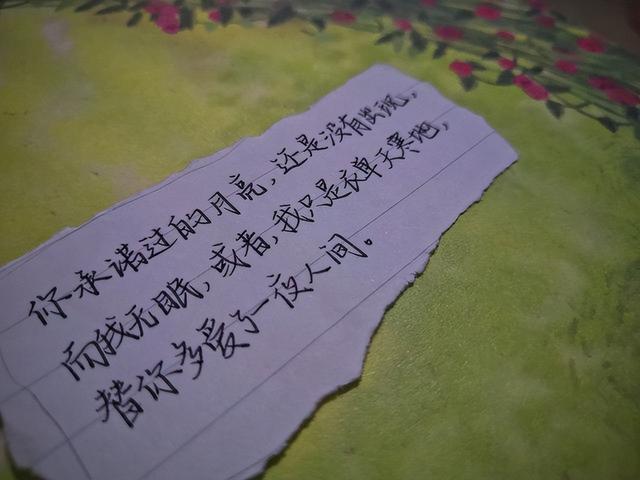 你承诺过的月亮，还是没有出现，
而我无眠，或者，我只是衣单天寒地，
替你多爱了一夜人间。